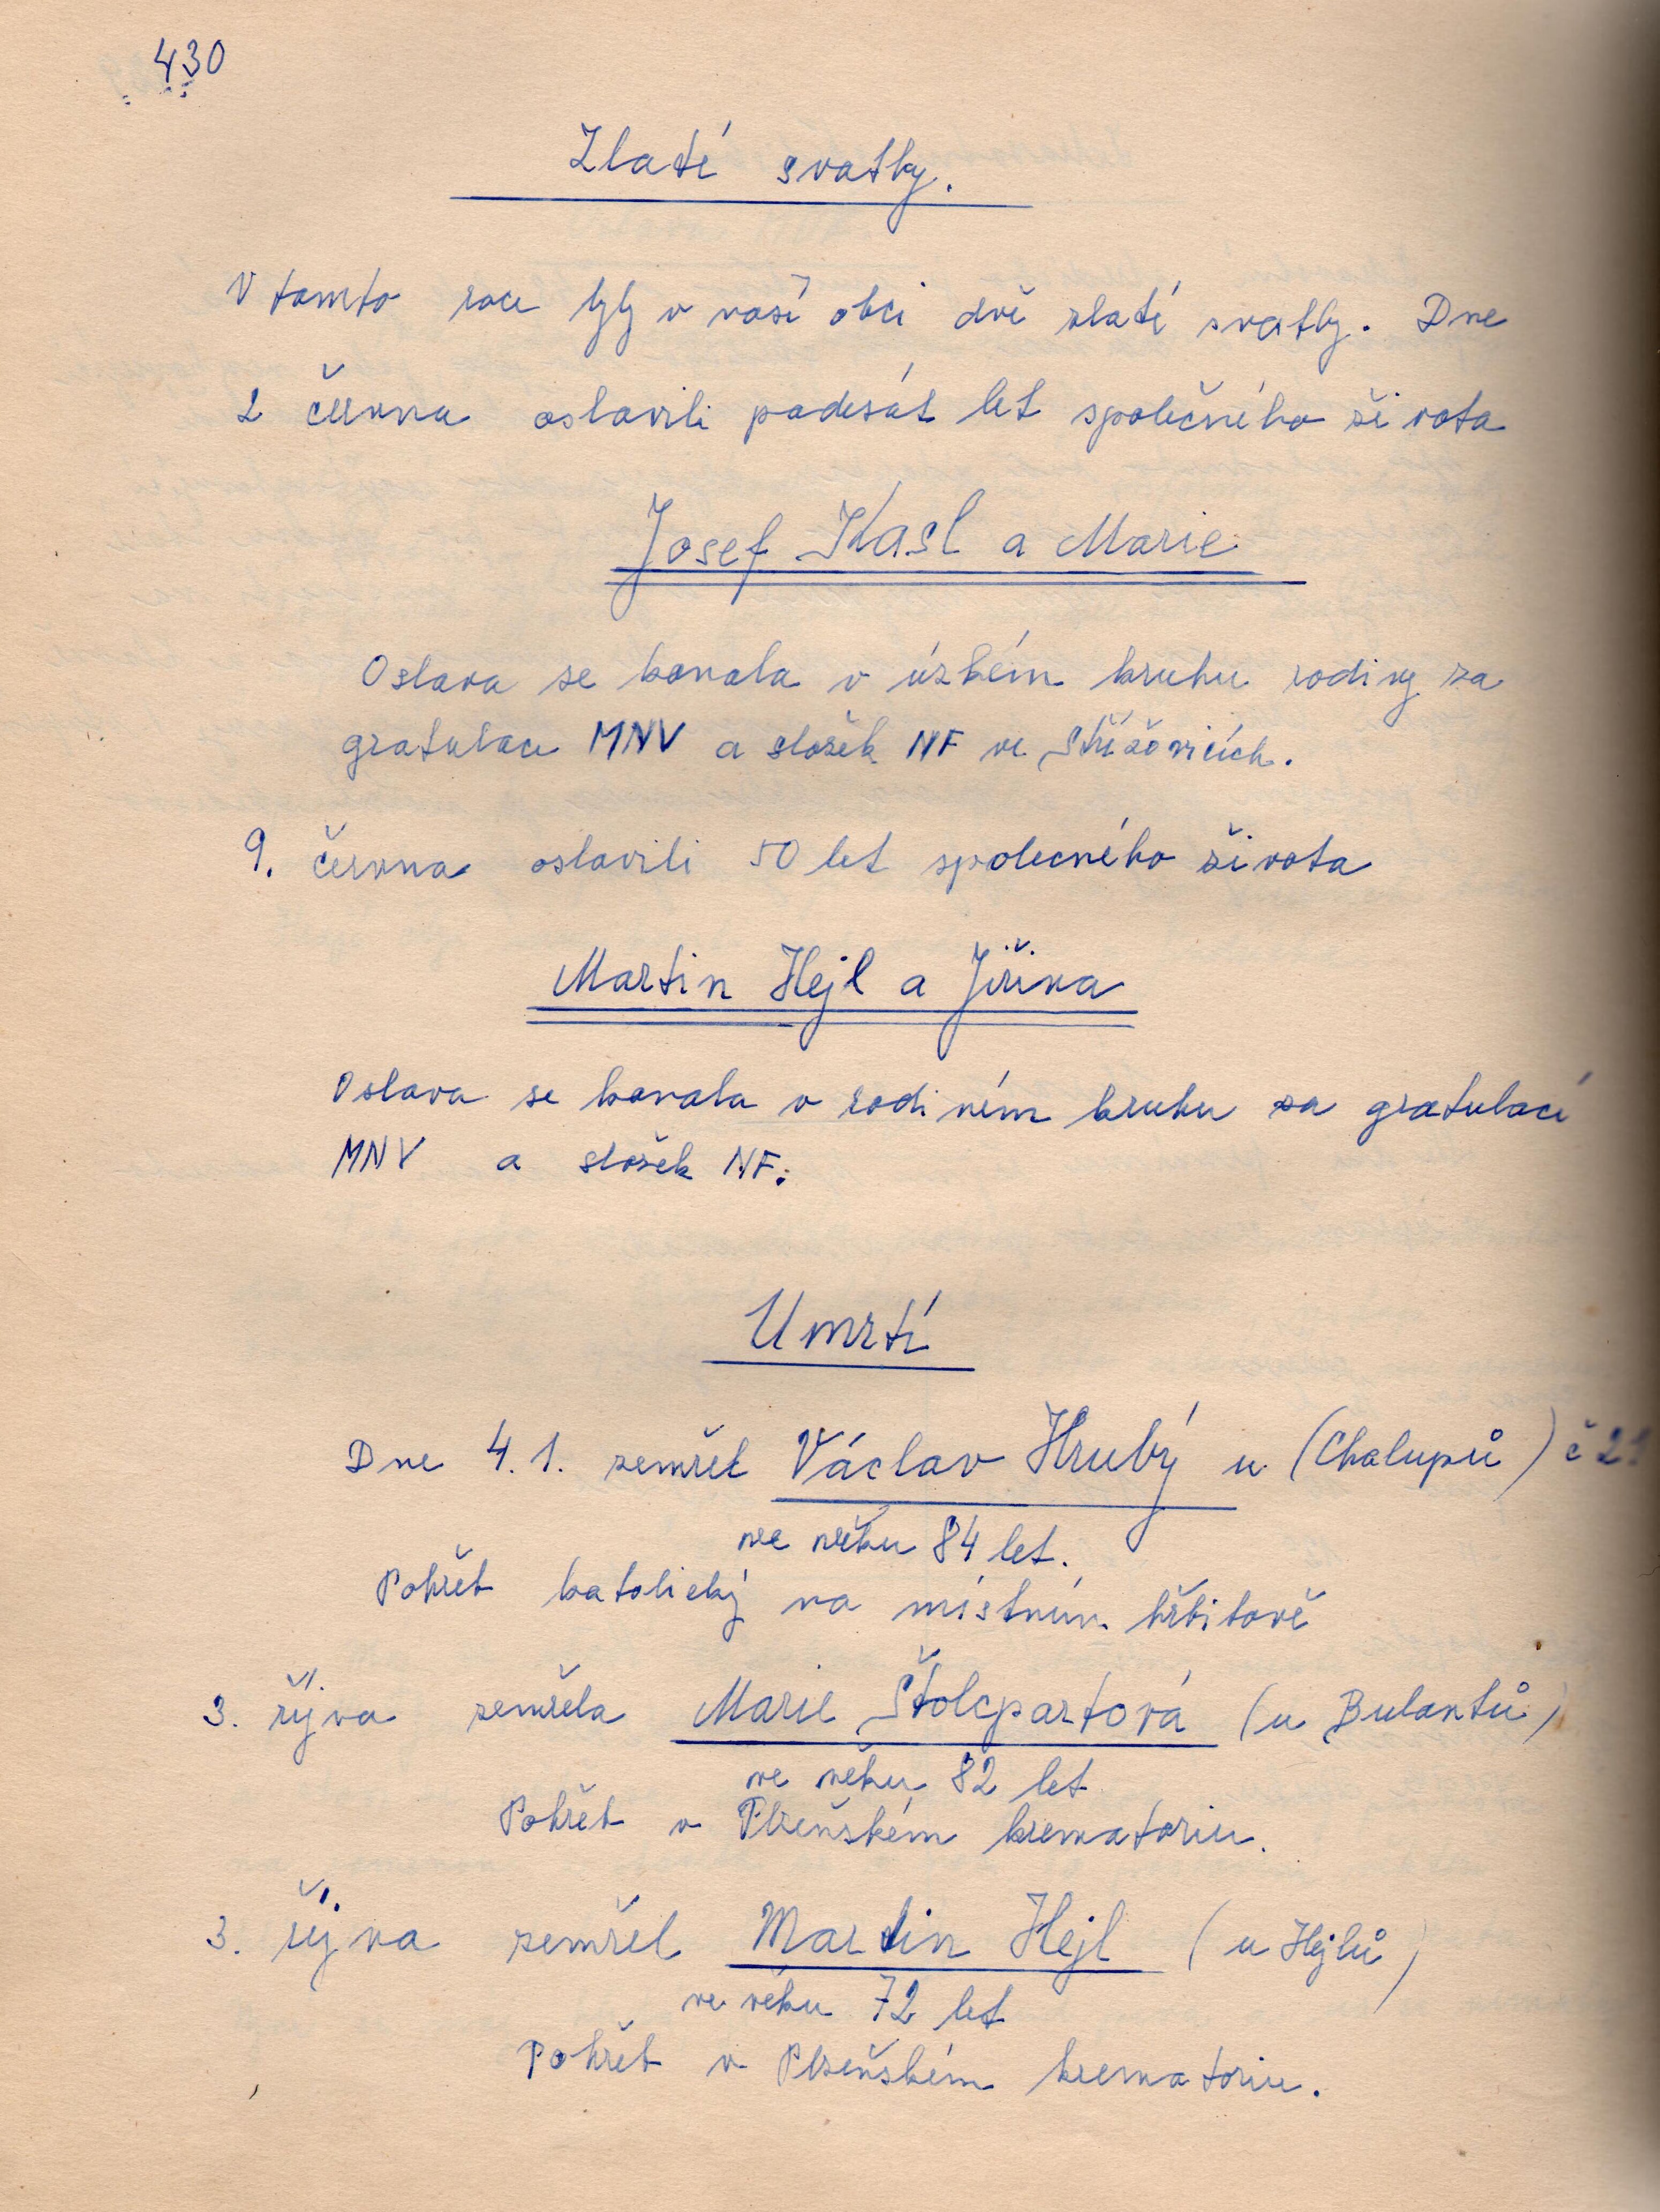 430
Zlaté svatby.
V tomto roce byly v naší obci dvě zlaté svatby. Dne
2 června oslavili padesát let společného života
Josef Kasl a Marie
Oslava se konala v úzkém kruhu rodiny za
gratulace MNV a složek NF ve Střížovicích.
9. června oslavili 50 let společného života
Martin Hejl a Jiřina
Oslava se konala v rodiném kruhu za gratulací
MNV a složek NF.
Umrtí
Dne 4.1. zemřel Václav Hrubý u (Chalupů) č
ve věku 84 let.
Pohřeb katolický na místním hřbitově
3. říjva zemřela Marie Štolcpartová (u Bulantů)
ve věku 82 let
Pohřeb v Plzeňském krematoriu.
3. říjva zemřel Martin Hejl (u Hejlů)
ve věku 72 let
Pohřeb v Plzeňském krematoriu.